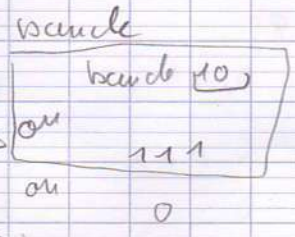 bande
bande 10
ou
111
ou
0